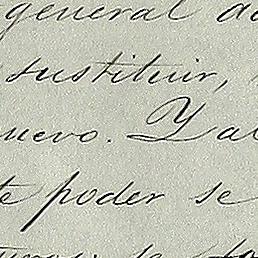 general
sustituir,
uevo. Y al
te poder se